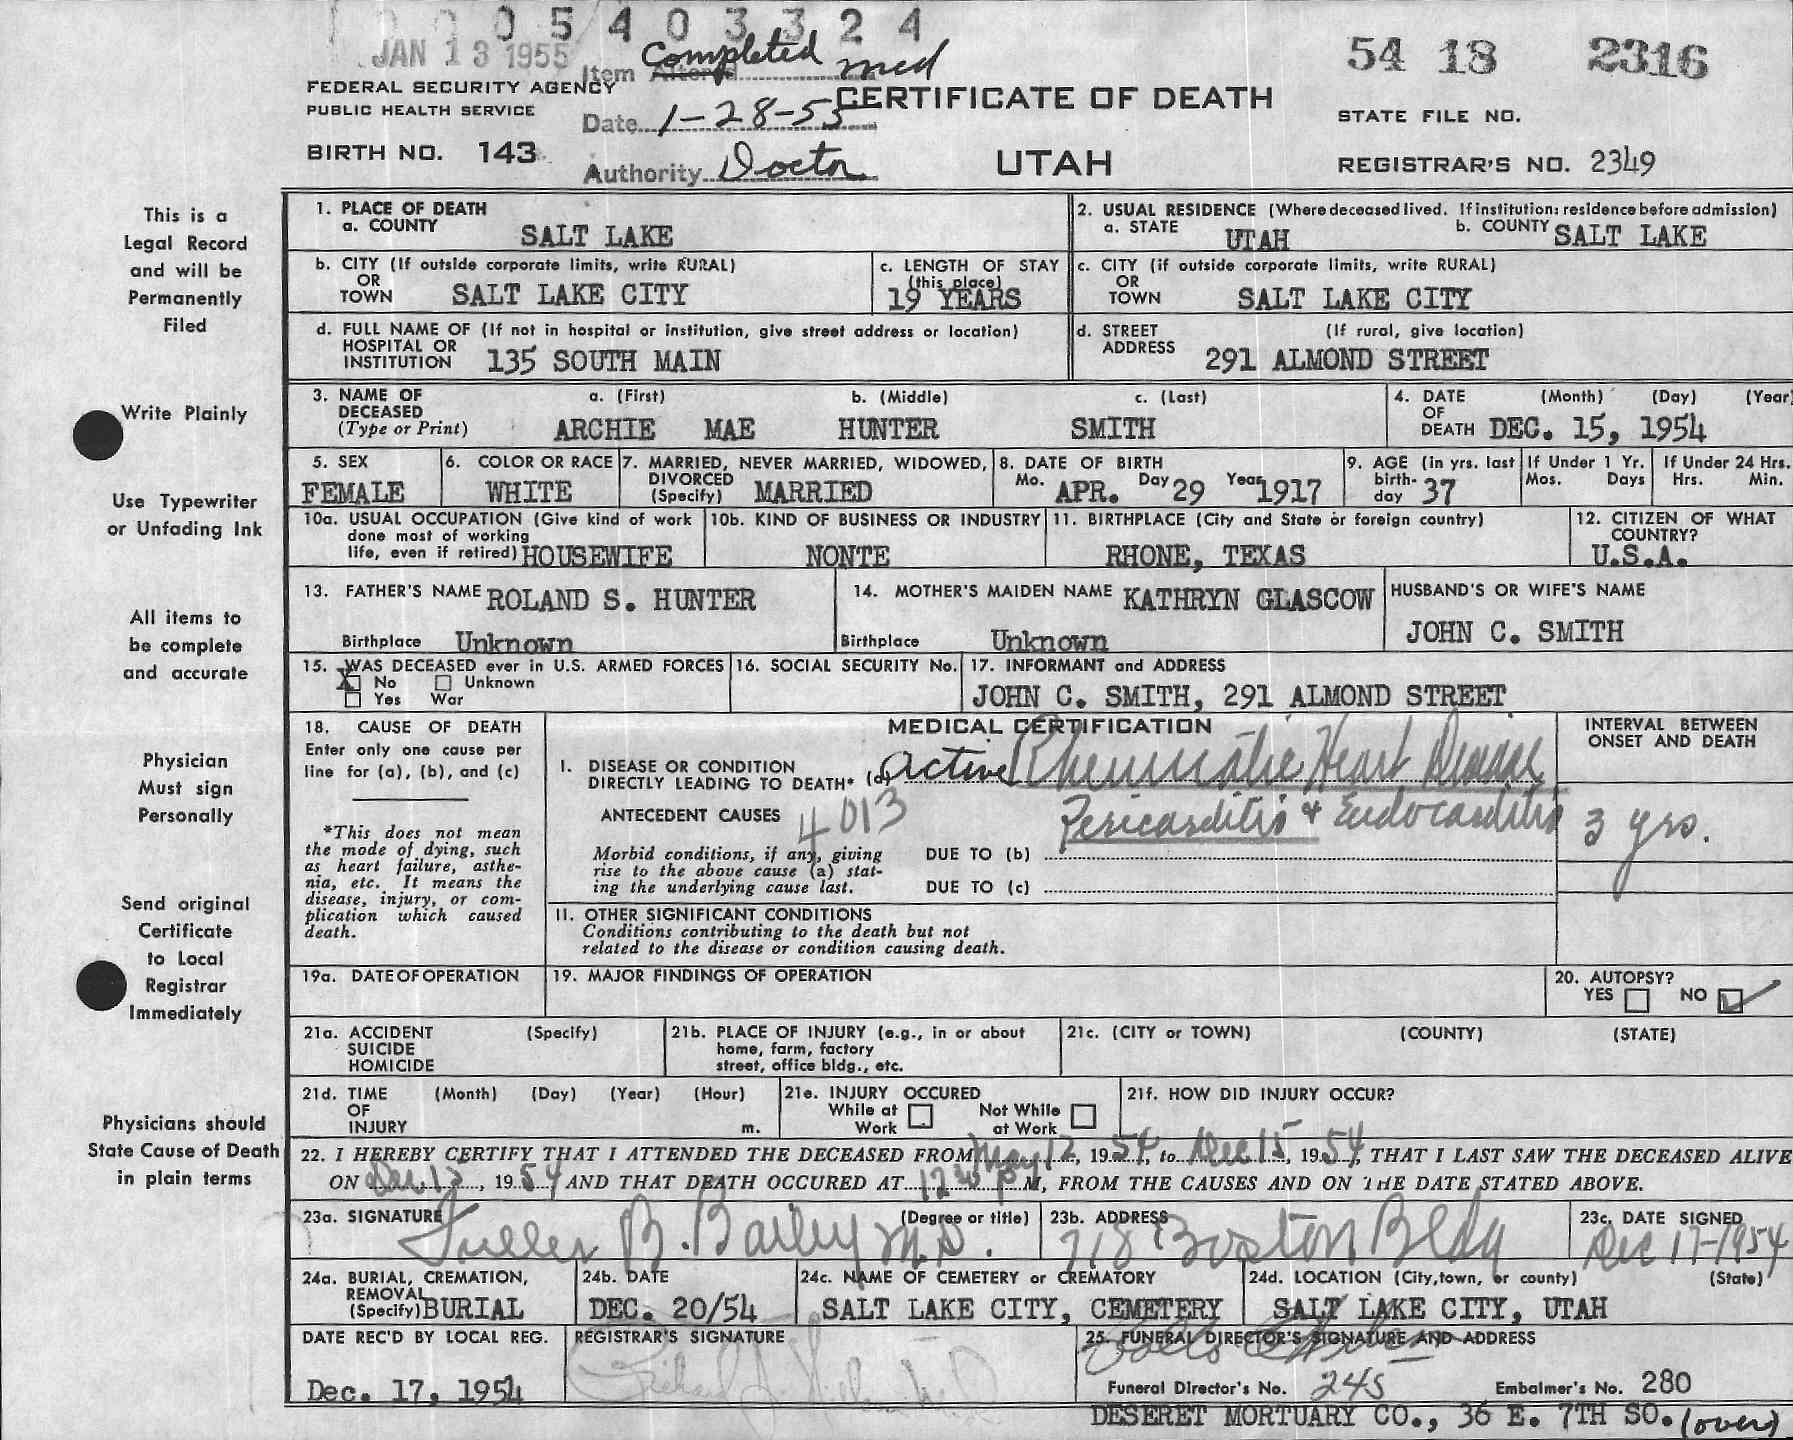 0 0 0 5 4 0 3 3 2 4
JAN 13 1955
Item Altered Completed med
54 18 2316
FEDERAL SECURITY AGENCY
PUBLIC HEALTH SERVICE
Date 1-28-55
CERTIFICATE OF DEATH
STATE FILE NO.
BIRTH NO. 143
Authority Doctor
UTAH
REGISTRAR'S NO. 2349
This is a
Legal Record
and will be
Permanently
Filed
Write Plainly
Use Typewriter
or Unfading Ink
All items to
be complete
and accurate
Physician
Must sign
Personally
Send original
Certificate
to Local
Registrar
Immediately
Physicians should
State Cause of Death
in plain terms
1. PLACE OF DEATH
a. COUNTY SALT LAKE
2. USUAL RESIDENCE (Where deceased lived. If institution: residence before admission)
a. STATE UTAH b. COUNTY SALT LAKE
b. CITY (If outside corporate limits, write RURAL)
OR
TOWN SALT LAKE CITY
c. LENGTH OF STAY
(this place)
19 YEARS
c. CITY (if outside corporate limits, write RURAL)
OR
TOWN SALT LAKE CITY
d. FULL NAME OF (If not in hospital or institution, give street address or location)
HOSPITAL OR
INSTITUTION 135 SOUTH MAIN
d. STREET (If rural, give location)
ADDRESS 291 ALMOND STREET
3. NAME OF a. (First) b. (Middle) c. (Last)
DECEASED
(Type or Print) ARCHIE MAE HUNTER SMITH
4. DATE (Month) (Day) (Year)
OF
DEATH DEC. 15, 1954
5. SEX
FEMALE
6. COLOR OR RACE
WHITE
7. MARRIED, NEVER MARRIED, WIDOWED,
DIVORCED
(Specify) MARRIED
8. DATE OF BIRTH
Mo. APR. Day 29 Year 1917
9. AGE (in yrs. last
birth-
day 37
If Under 1 Yr.
Mos. Days
If Under 24 Hrs.
Hrs. Min.
10a. USUAL OCCUPATION (Give kind of work
done most of working
life, even if retired) HOUSEWIFE
10b. KIND OF BUSINESS OR INDUSTRY
NONTE
11. BIRTHPLACE (City and State or foreign country)
RHONE, TEXAS
12. CITIZEN OF WHAT
COUNTRY?
U.S.A.
13. FATHER'S NAME ROLAND S. HUNTER
Birthplace Unknown
14. MOTHER'S MAIDEN NAME KATHRYN GLASCOW
Birthplace Unknown
HUSBAND'S OR WIFE'S NAME
JOHN C. SMITH
15. WAS DECEASED ever in U.S. ARMED FORCES
X No Unknown
Yes War
16. SOCIAL SECURITY No.
17. INFORMANT and ADDRESS
JOHN C. SMITH, 291 ALMOND STREET
18. CAUSE OF DEATH
Enter only one cause per
line for (a), (b), and (c)
*This does not mean
the mode of dying, such
as heart failure, asthe-
nia, etc. It means the
disease, injury, or com-
plication which caused
death.
MEDICAL CERTIFICATION
I. DISEASE OR CONDITION
DIRECTLY LEADING TO DEATH* (a) active Rheumatic Heart Disease
ANTECEDENT CAUSES 4013 Pericarditis & Endocarditis
Morbid conditions, if any, giving
rise to the above cause (a) stat-
ing the underlying cause last.
DUE TO (b)
DUE TO (c)
INTERVAL BETWEEN
ONSET AND DEATH
3 yrs.
II. OTHER SIGNIFICANT CONDITIONS
Conditions contributing to the death but not
related to the disease or condition causing death.
19a. DATE OF OPERATION
19. MAJOR FINDINGS OF OPERATION
20. AUTOPSY?
YES NO ✓
21a. ACCIDENT (Specify)
SUICIDE
HOMICIDE
21b. PLACE OF INJURY (e.g., in or about
home, farm, factory
street, office bldg., etc.
21c. (CITY or TOWN) (COUNTY) (STATE)
21d. TIME (Month) (Day) (Year) (Hour)
OF
INJURY m.
21e. INJURY OCCURED
While at Work
Not While at Work
21f. HOW DID INJURY OCCUR?
22. I HEREBY CERTIFY THAT I ATTENDED THE DECEASED FROM May 12, 1954, to Dec 15, 1954, THAT I LAST SAW THE DECEASED ALIVE
ON Dec 15, 1954 AND THAT DEATH OCCURED AT 12 30 P M, FROM THE CAUSES AND ON THE DATE STATED ABOVE.
23a. SIGNATURE (Degree or title)
Fuller B. Bailey M.D.
23b. ADDRESS
718 Boston Bldg
23c. DATE SIGNED
Dec 17-1954
24a. BURIAL, CREMATION,
REMOVAL
(Specify) BURIAL
24b. DATE
DEC. 20/54
24c. NAME OF CEMETERY or CREMATORY
SALT LAKE CITY, CEMETERY
24d. LOCATION (City, town, or county) (State)
SALT LAKE CITY, UTAH
DATE REC'D BY LOCAL REG.
Dec. 17, 1954
REGISTRAR'S SIGNATURE
25. FUNERAL DIRECTOR'S SIGNATURE AND ADDRESS
Funeral Director's No. 245 Embalmer's No. 280
DESERET MORTUARY CO., 36 E. 7TH SO. (over)